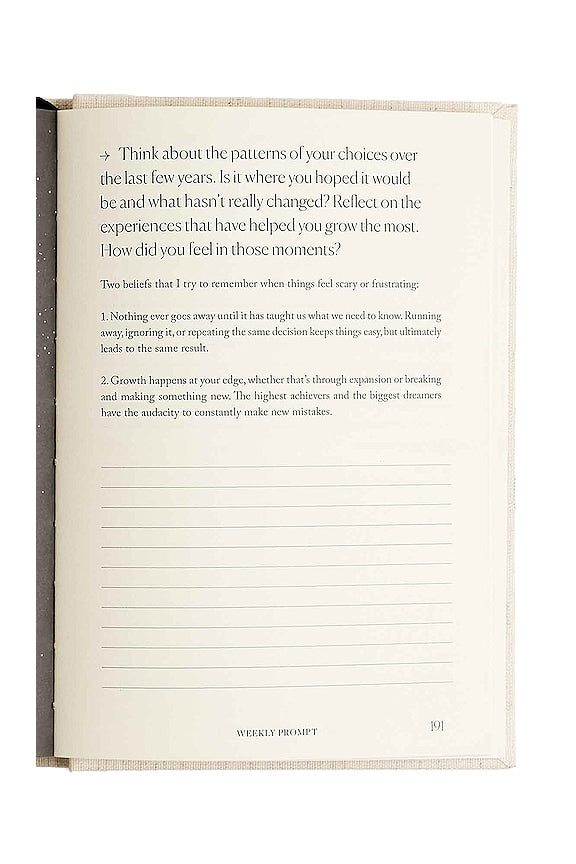 → Think about the patterns of your choices over
the last few years. Is it where you hoped it would
be and what hasn't really changed? Reflect on the
experiences that have helped you grow the most.
How did you feel in those moments?
Two beliefs that I try to remember when things feel scary or frustrating:
1. Nothing ever goes away until it has taught us what we need to know. Running
away, ignoring it, or repeating the same decision keeps things easy, but ultimately
leads to the same result.
2. Growth happens at your edge, whether that's through expansion or breaking
and making something new. The highest achievers and the biggest dreamers
have the audacity to constantly make new mistakes.
WEEKLY PROMPT
191